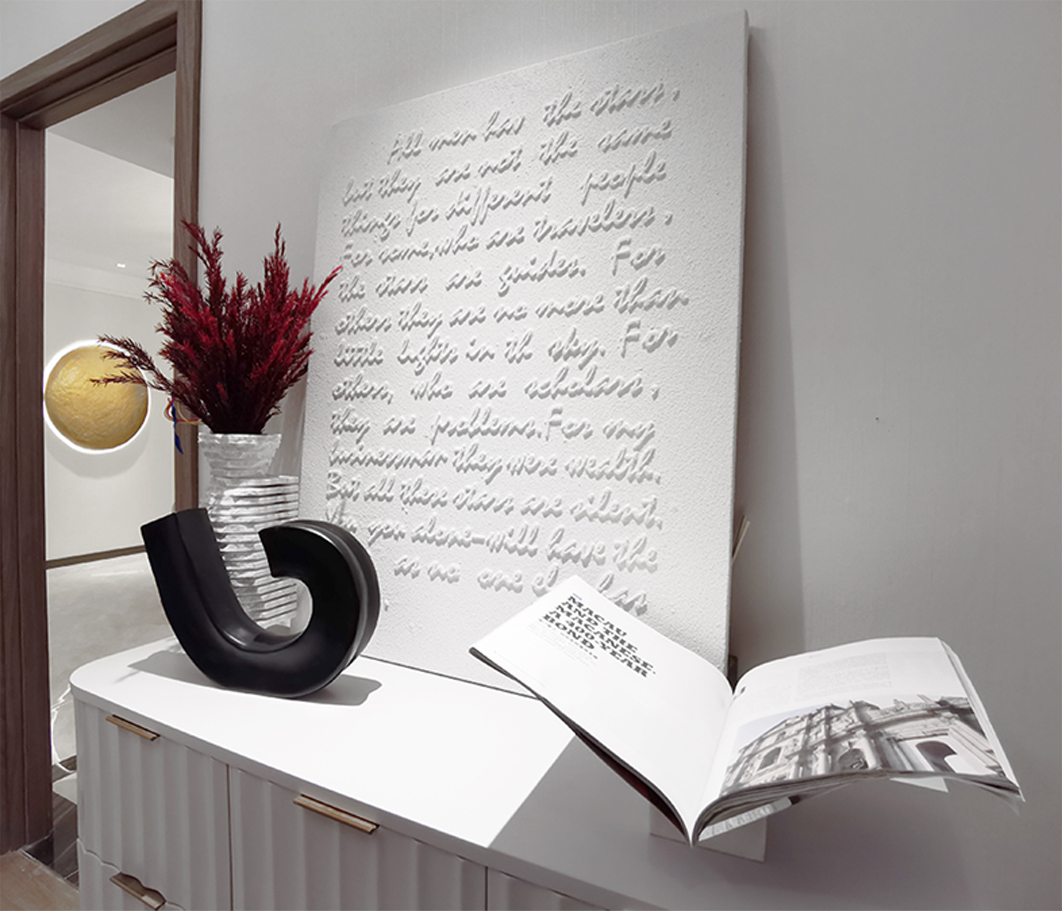 All men hav the stars,
but they are not the same
things for different people
For some, who are travelers,
the stars are guides. For
others they are no more than
little lights in th sky. For
others, who are scholars,
they are problems. For my
businessman they were wealth.
But all these stars are silent.
you alone-will have the
as no one else has
MACAU
AND THE
MACANESE.
A 500-YEAR
BOND